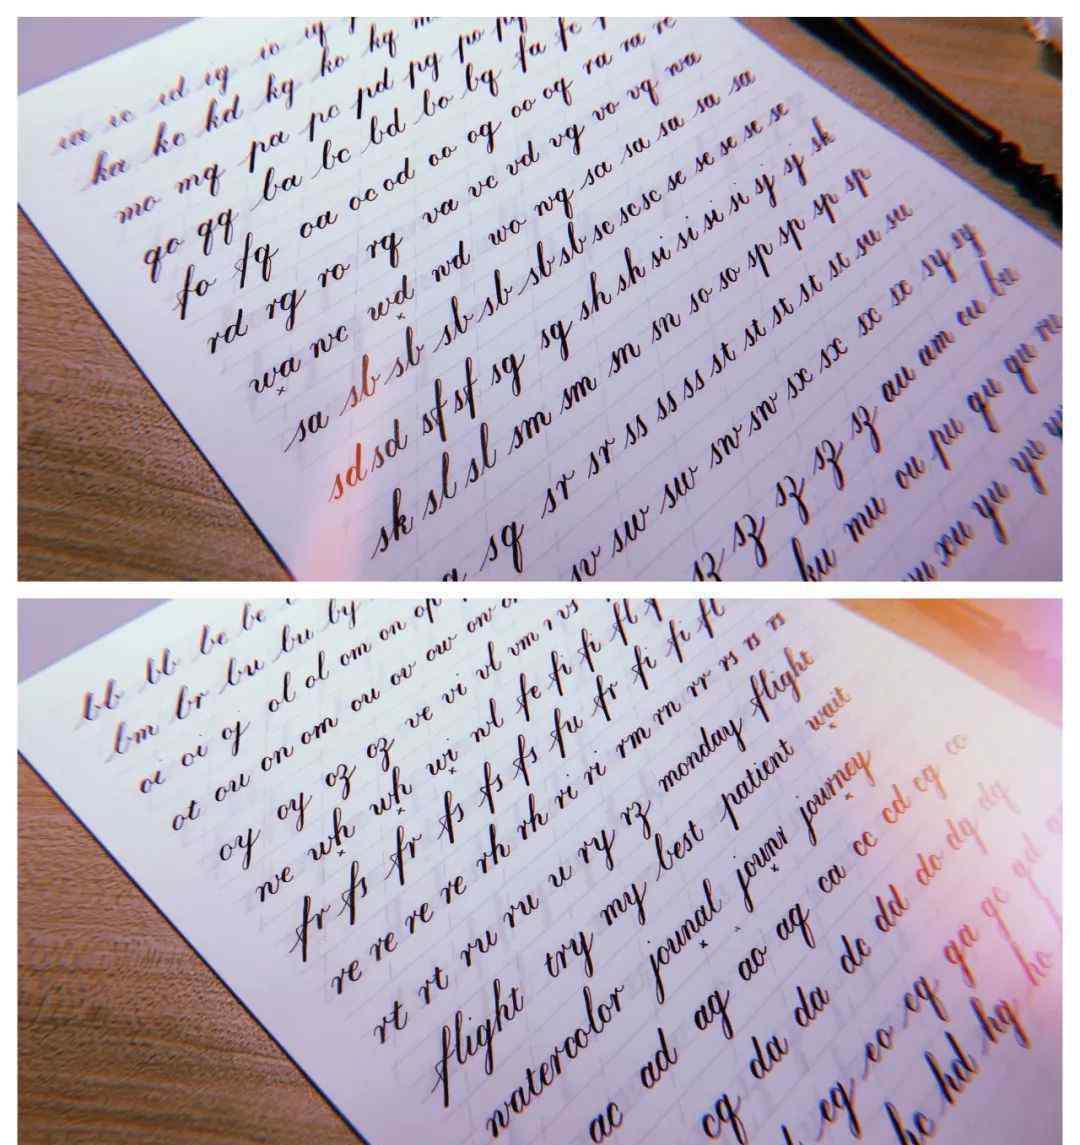 ia ic id ig io iq
ka kc kd kg ko kq
mo mq pa pc pd pg po pq
qo qq ba bc bd bo bq fa fc
fo fq oa oc od oo og oo oq ra ra re
rd rg ro rq va vc vd vg vo vq wa
wa wc wd wd wo wq sa sa sa sa sa
sa sb sb sb sb sb sb sc scsc se se se se se
sd sd sf sf sg sg sh sh si si si si sj sj sk
sk sl sl sm sm sm sn so so sp sp sp sp
sq sr sr ss ss ss st st st st st su su
sw sw sw sw sx sx sx sx sy sy
sz sz sz sz sz au am cu bu
ku mu ou pu qu qu ru
xu yu yu
bb bb be be
bm br bu bu by
oe oi oj ol ol om on op
ot ou on om ou ov ow ow
oy oy oz oz ve vi vl vm
we wh wh wi wl fe fi fi fl
fr fs fr fs fs fs fu fr fi fi fl
re re re re rh rh ri ri rm rn rr rs rs rs
rt rt ru ru u ry rz monday flight
flight try my best patient wait
watercolor jounal jounr journey
ac ad ag ao aq ca cc cd cg co
cq da da dc dd do dq dq
eg eo eq ga gc gd
hc hd hg ho